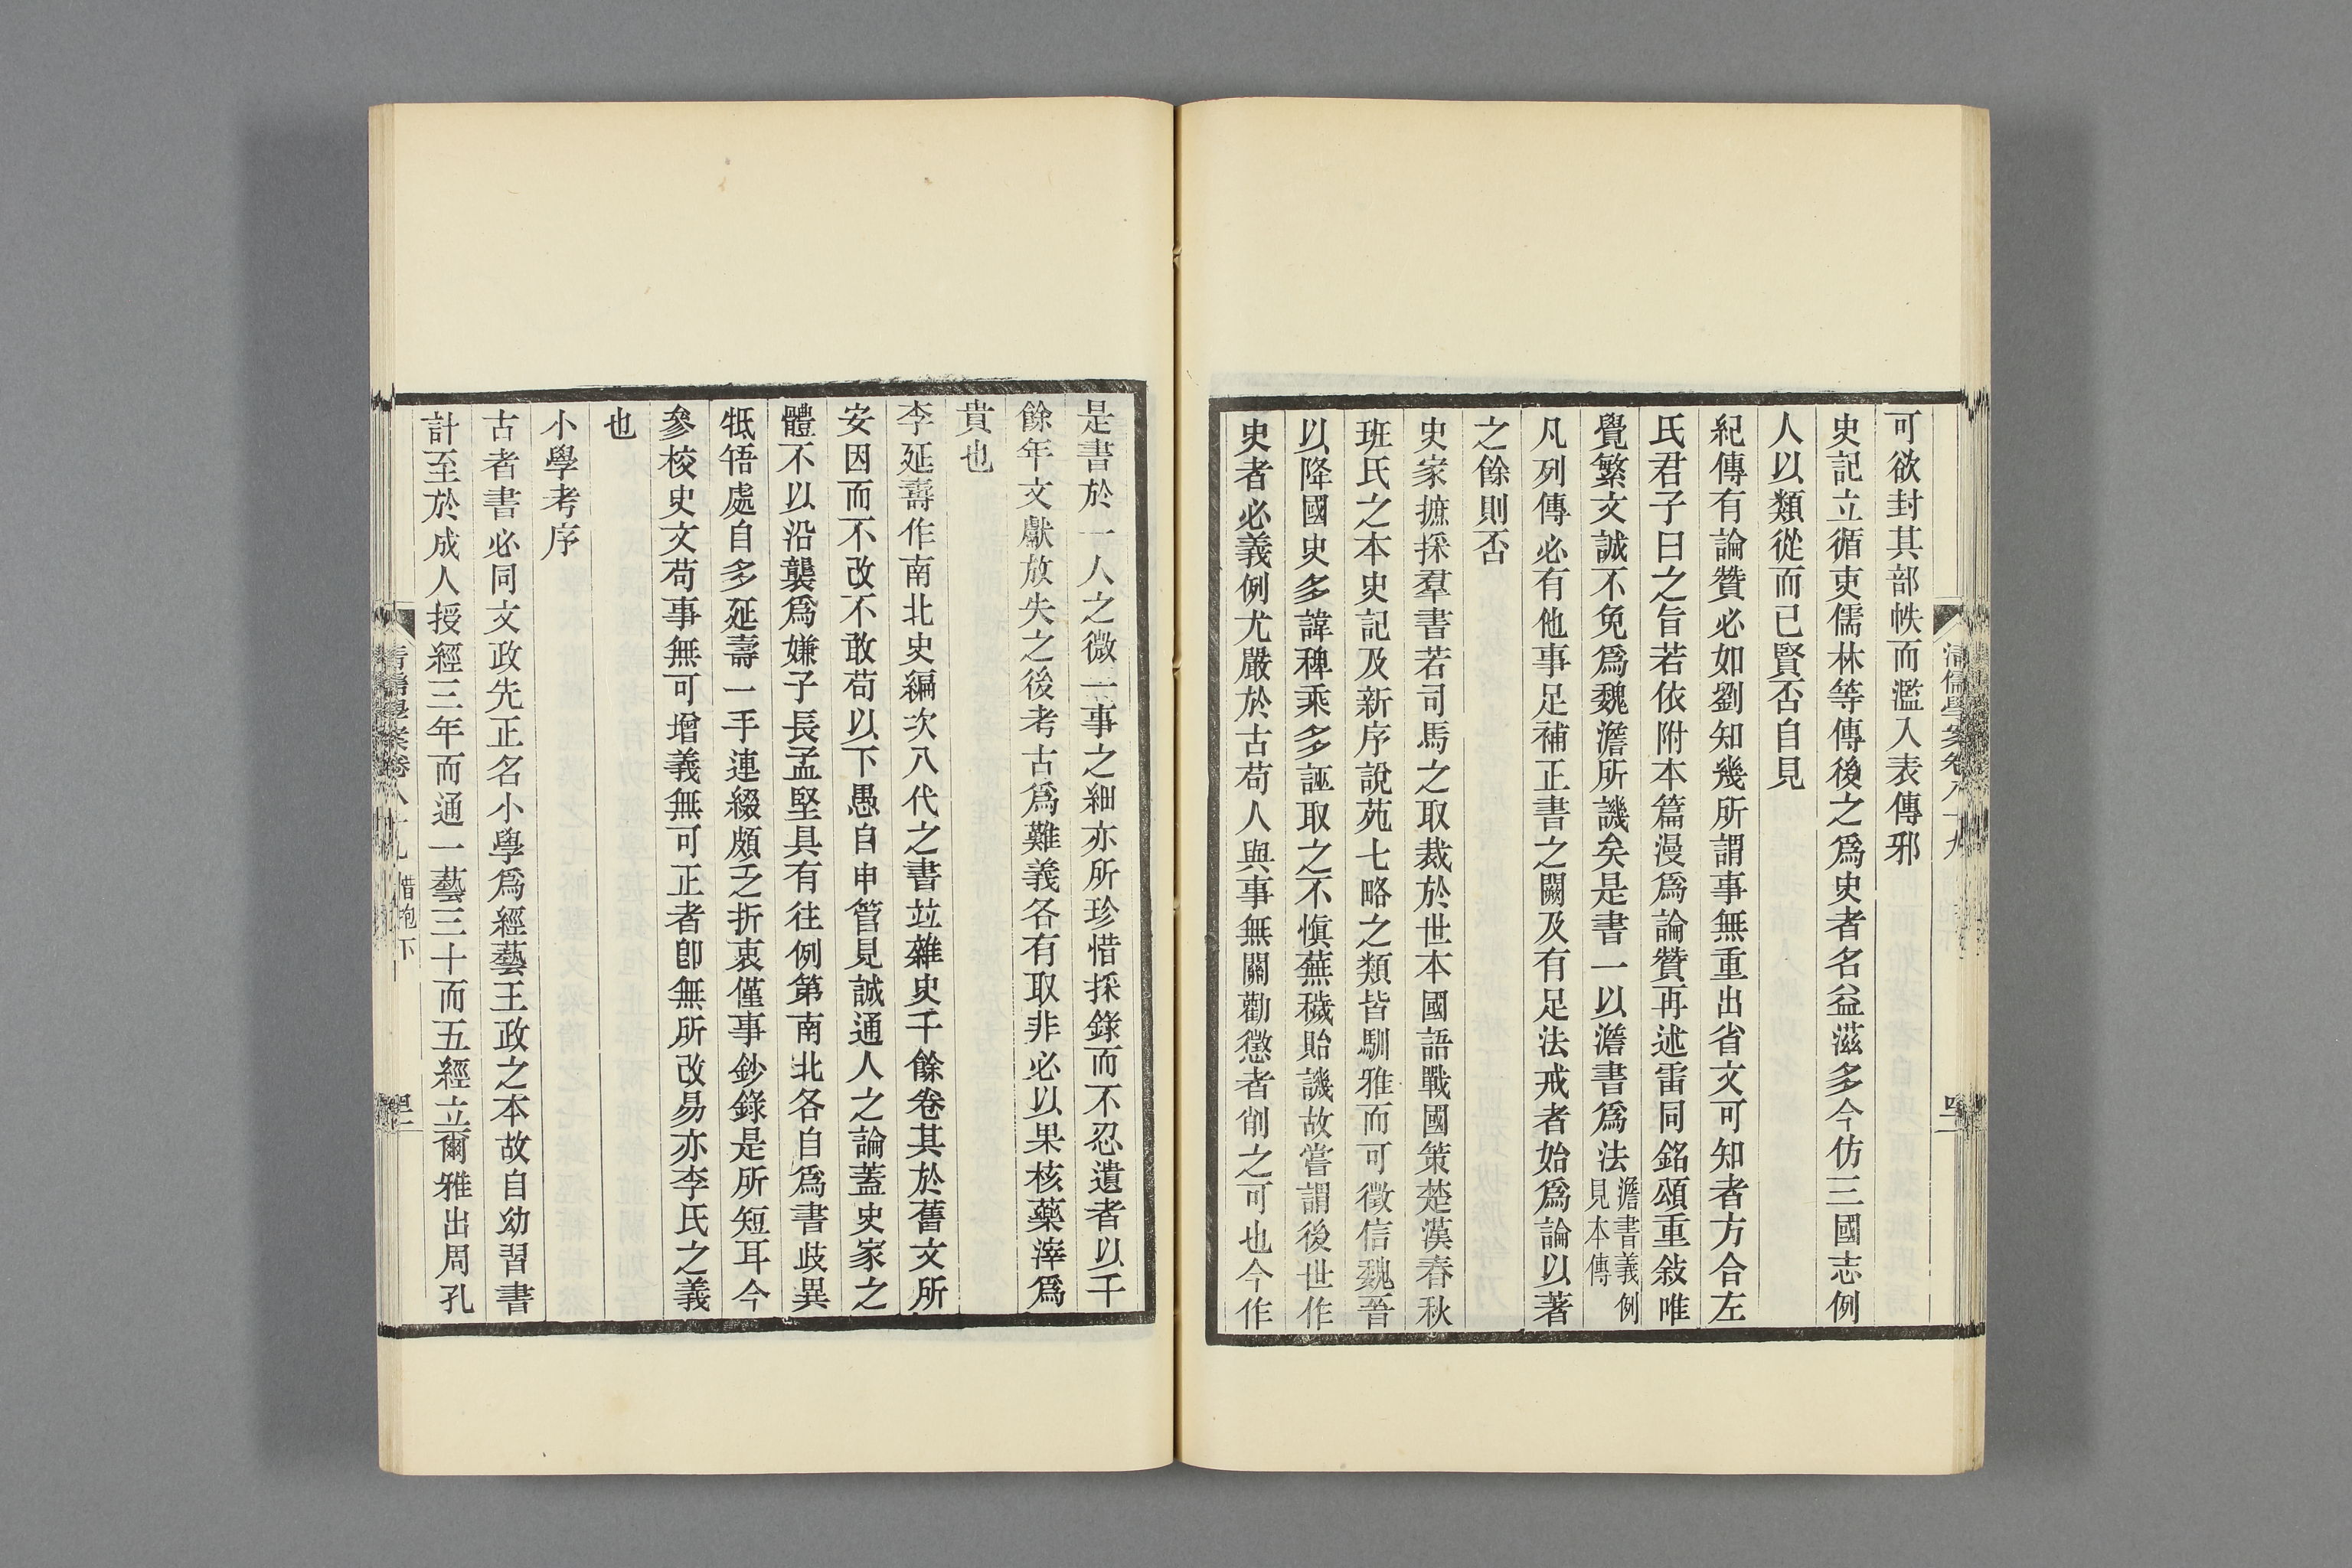 可欲封其部帙而濫入表傳邪
史記立循吏儒林等傳後之爲史者名益滋多今仿三國志例
人以類從而已賢否自見
紀傳有論贊必如劉知幾所謂事無重出省文可知者方合左
氏君子曰之旨若依附本篇漫爲論贊再述雷同銘頌重敍唯
覺繁文誠不免爲魏澹所譏矣是書一以澹書爲法澹書義例見本傳
凡列傳必有他事足補正書之闕及有足法戒者始爲論以著
之餘則否
史家摭採羣書若司馬之取裁於世本國語戰國策楚漢春秋
班氏之本史記及新序說苑七略之類皆馴雅而可徵信魏晉
以降國史多諱稗乘多誣取之不愼蕪穢貽譏故嘗謂後世作
史者必義例尤嚴於古苟人與事無關勸懲者削之可也今作
是書於一人之微一事之細亦所珍惜採錄而不忍遺者以千
餘年文獻放失之後考古爲難義各有取非必以果核藥滓爲
貴也
李延壽作南北史編次八代之書竝雜史千餘卷其於舊文所
安因而不改不敢苟以下愚自申管見誠通人之論蓋史家之
體不以沿襲爲嫌子長孟堅具有往例第南北各自爲書歧異
牴牾處自多延壽一手連綴頗乏折衷僅事鈔錄是所短耳今
參校史文苟事無可增義無可正者卽無所改易亦李氏之義
也
小學考序
古者書必同文政先正名小學爲經藝王政之本故自幼習書
計至於成人授經三年而通一藝三十而五經立爾雅出周孔
清儒學案卷八十九 惜抱下